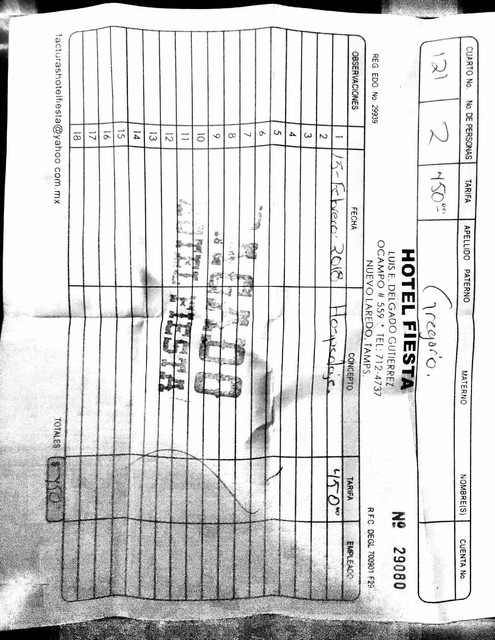 CUARTO No. No. DE PERSONAS TARIFA APELLIDO PATERNO MATERNO NOMBRE(S) CUENTA No
121 2 450.00 Gregorio.
HOTEL FIESTA
LUIS E. DELGADO GUTIERREZ
OCAMPO # 559 * TEL: 712-4737
NUEVO LAREDO, TAMPS.
Nº 29080
REG. EDO No. 29939
R.F.C. DEGL 700901 F29
OBSERVACIONES FECHA CONCEPTO TARIFA EMPLEADO
1 15-Febrero 2018 Hospedaje. 450.00
2
3
4
5
6
7
8
9
10
11
12
13
14
15
16
17
18
PAGADO
HOTEL FIESTA
TOTALES $ 450
facturashotelfiesta@yahoo.com.mx